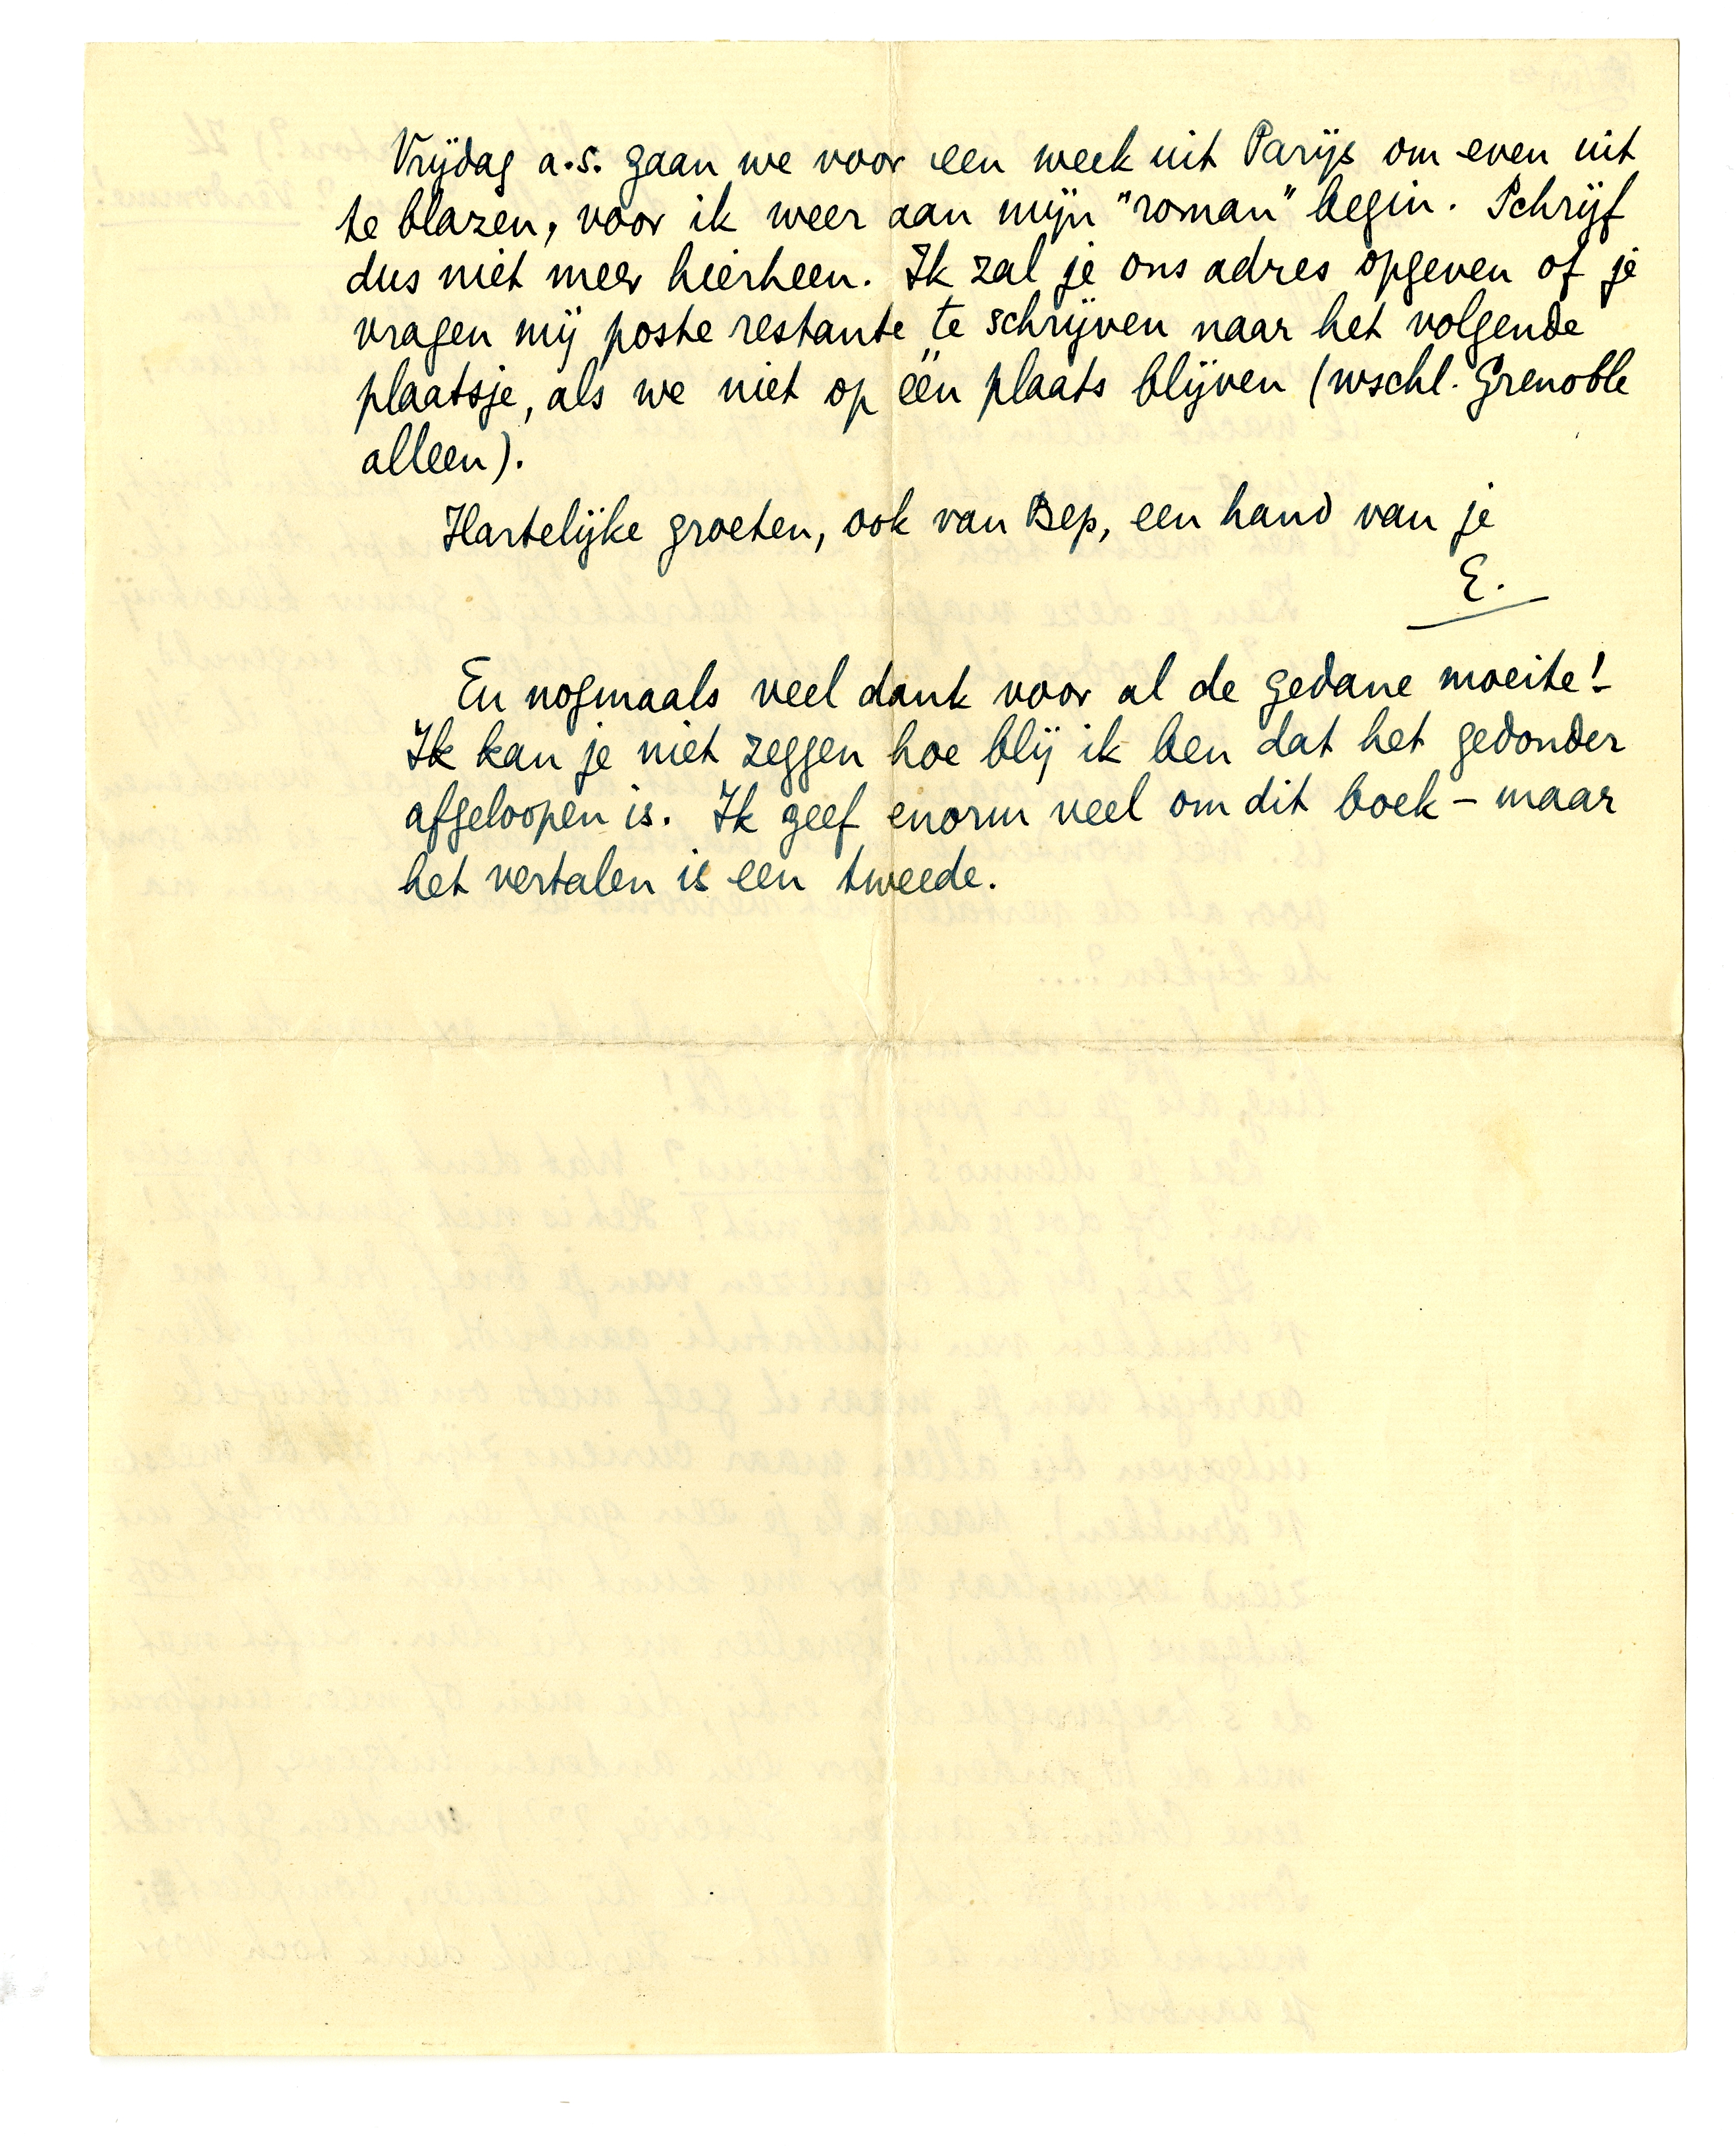 Vrijdag a.s. gaan we voor een week uit Parijs om even uit
te blazen, voor ik weer aan mijn "roman" begin. Schrijf
dus niet meer hierheen. Ik zal je ons adres opgeven of je
vragen mij poste restante te schrijven naar het volgende
plaatsje, als we niet op één plaats blijven (wschl. Grenoble
alleen).
Hartelijke groeten, ook van Bep, een hand van je
E.
En nogmaals veel dank voor al de gedane moeite! -
Ik kan je niet zeggen hoe blij ik ben dat het gedonder
afgeloopen is. Ik geef enorm veel om dit boek - maar
het vertalen is een tweede.